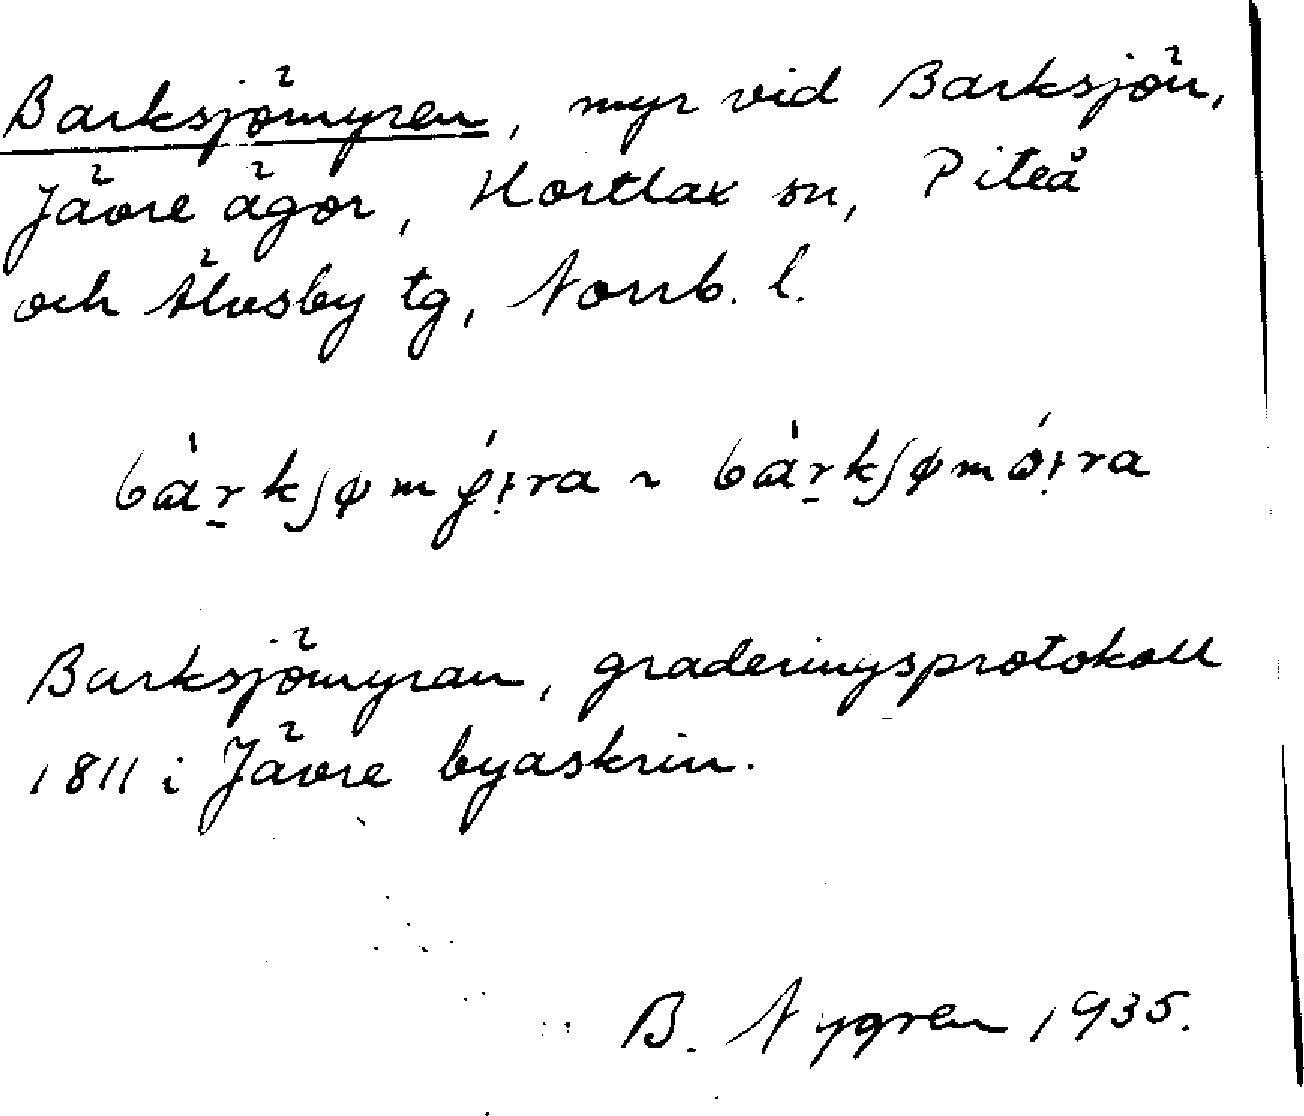 Barksjömyren, myr vid Barksjön,
Jävre ägor, Hortlax sn, Piteå
och Älvsby tg, Norrb. l.
Barksjömyran, graderingsprotokoll
1811 i Jävre byaskrin.
B. Nygren 1935.